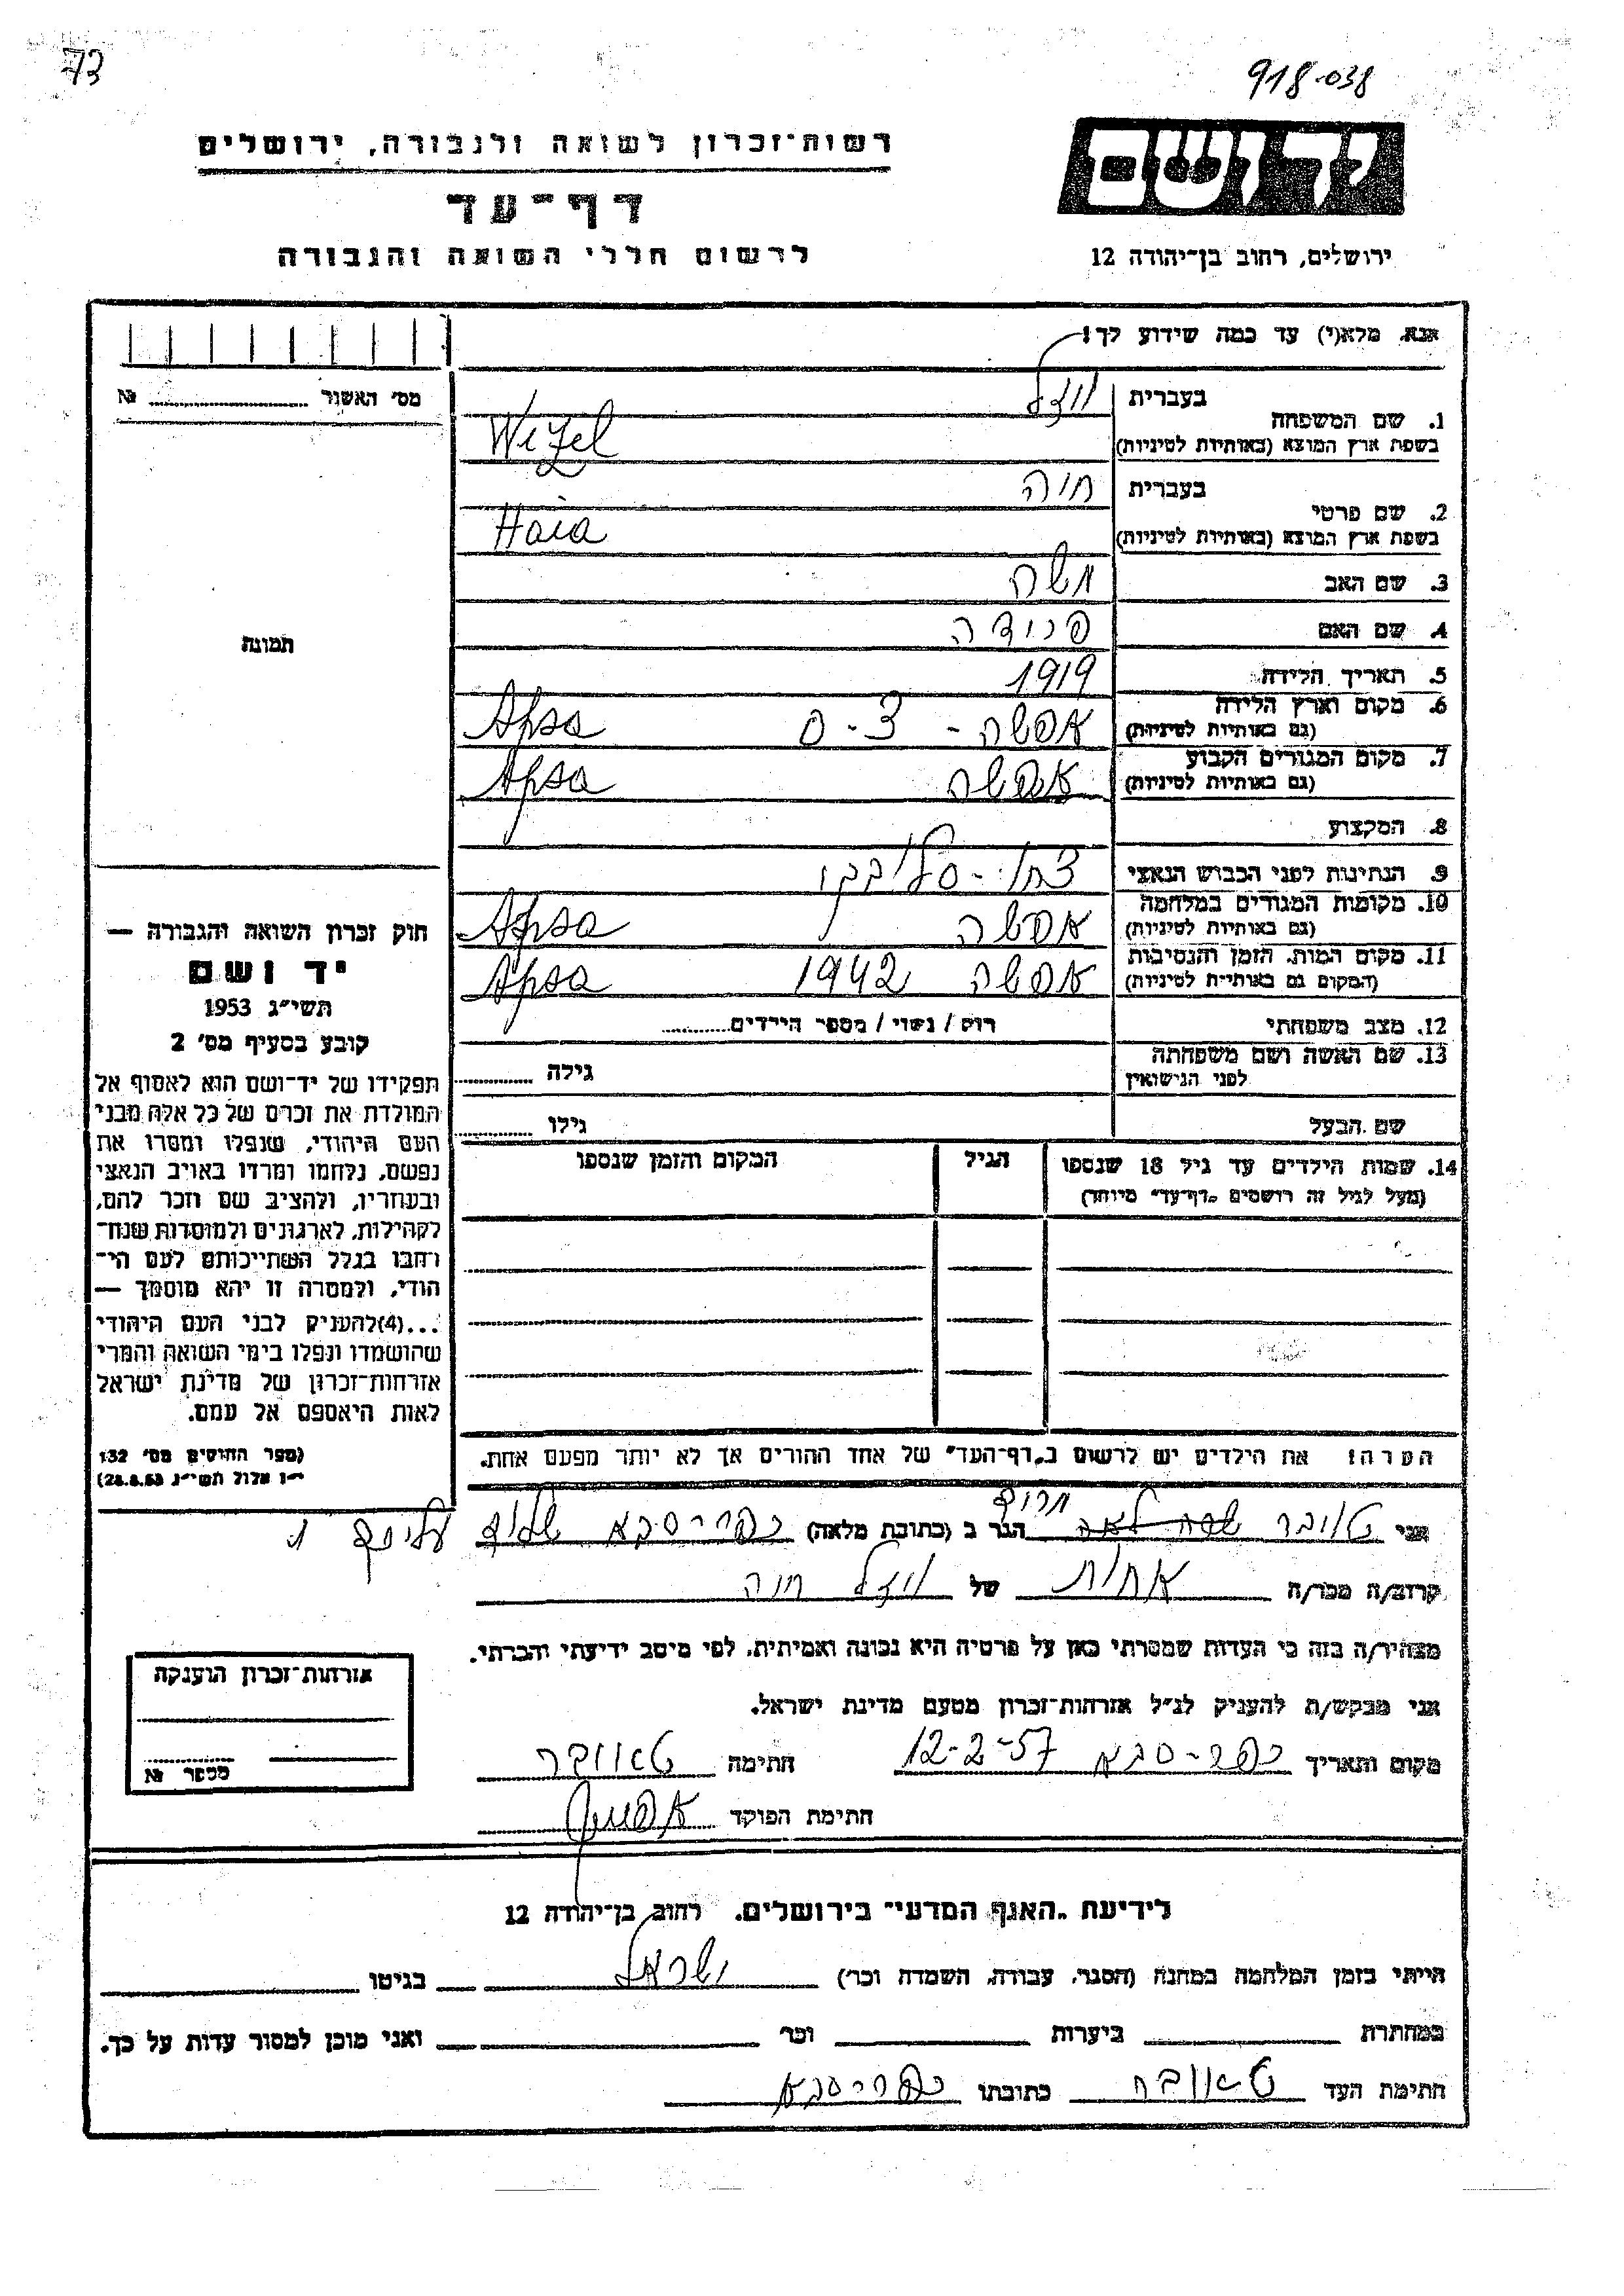 73
918-038
יד ושם
רשות-זכרון לשואה ולגבורה, ירושלים
דף-עד
לרשום חללי השואה והגבורה
ירושלים, רחוב בן-יהודה 12
אנא, מלא(י) עד כמה שידוע לך!
מס' האשור № ............
1. שם המשפחה בעברית וויזל
בשפת ארץ המוצא (באותיות לטיניות) Wizel
2. שם פרטי בעברית חיה
בשפת ארץ המוצא (באותיות לטיניות) Haia
3. שם האב משה
4. שם האם
5. תאריך הלידה 1919
6. מקום וארץ הלידה (גם באותיות לטיניות) אפשה - צ.ס Apsa
7. מקום המגורים הקבוע (גם באותיות לטיניות) אפשה Apsa
8. המקצוע
9. הנתינות לפני הכבוש הנאצי
10. מקומות המגורים במלחמה (גם באותיות לטיניות) אפשה Apsa
11. מקום המות, הזמן והנסיבות (המקום גם באותיות לטיניות) אפשה 1942 Apsa
12. מצב משפחתי רווק / נשוי / מספר הילדים............
13. שם האשה ושם משפחתה לפני הנישואין גילה ............
שם הבעל גילו ............
14. שמות הילדים עד גיל 18 שנספו הגיל המקום והזמן שנספו
(מעל לגיל זה רושמים "דף-עד" מיוחד)
הערה! את הילדים יש לרשום ב"דף-העד" של אחד ההורים אך לא יותר מפעם אחת.
תמונה
חוק זכרון השואה והגבורה —
יד ושם
תשי"ג 1953
קובע בסעיף מס' 2
תפקידו של יד-ושם הוא לאסוף אל
המולדת את זכרם של כל אלה מבני
העם היהודי, שנפלו ומסרו את
נפשם, נלחמו ומרדו באויב הנאצי
ובעוזריו, ולהציב שם וזכר להם,
לקהילות, לארגונים ולמוסדות שנח-
רבו בגלל השתייכותם לעם הי-
הודי, ולמטרה זו יהא מוסמך —
...(4)להעניק לבני העם היהודי
שהושמדו ונפלו בימי השואה והמרי
אזרחות-זכרון של מדינת ישראל
לאות היאספם אל עמם.
(ספר החוקים מס' 132
י"ז אלול תשי"ג 28.8.53)
אני טויבר הגר ב (כתובת מלאה) כפר-סבא
קרוב/ה מכר/ה אחות של וויזל חיה
מצהיר/ה בזה כי העדות שמסרתי כאן על פרטיה היא נכונה ואמיתית, לפי מיטב ידיעתי והכרתי.
אני מבקש/ת להעניק לנ"ל אזרחות-זכרון מטעם מדינת ישראל.
מקום ותאריך כפר-סבא 12-2-57 חתימה טאובר
חתימת הפוקד
אזרחות-זכרון הוענקה
מספר №
לידיעת "האגף המדעי" בירושלים, רחוב בן-יהודה 12
הייתי בזמן המלחמה במחנה (הסגר, עבודה, השמדה וכר') ישראל בגיטו
במחתרת ביערות וכר' ואני מוכן למסור עדות על כך.
חתימת העד טאובר כתובתו כפר-סבא